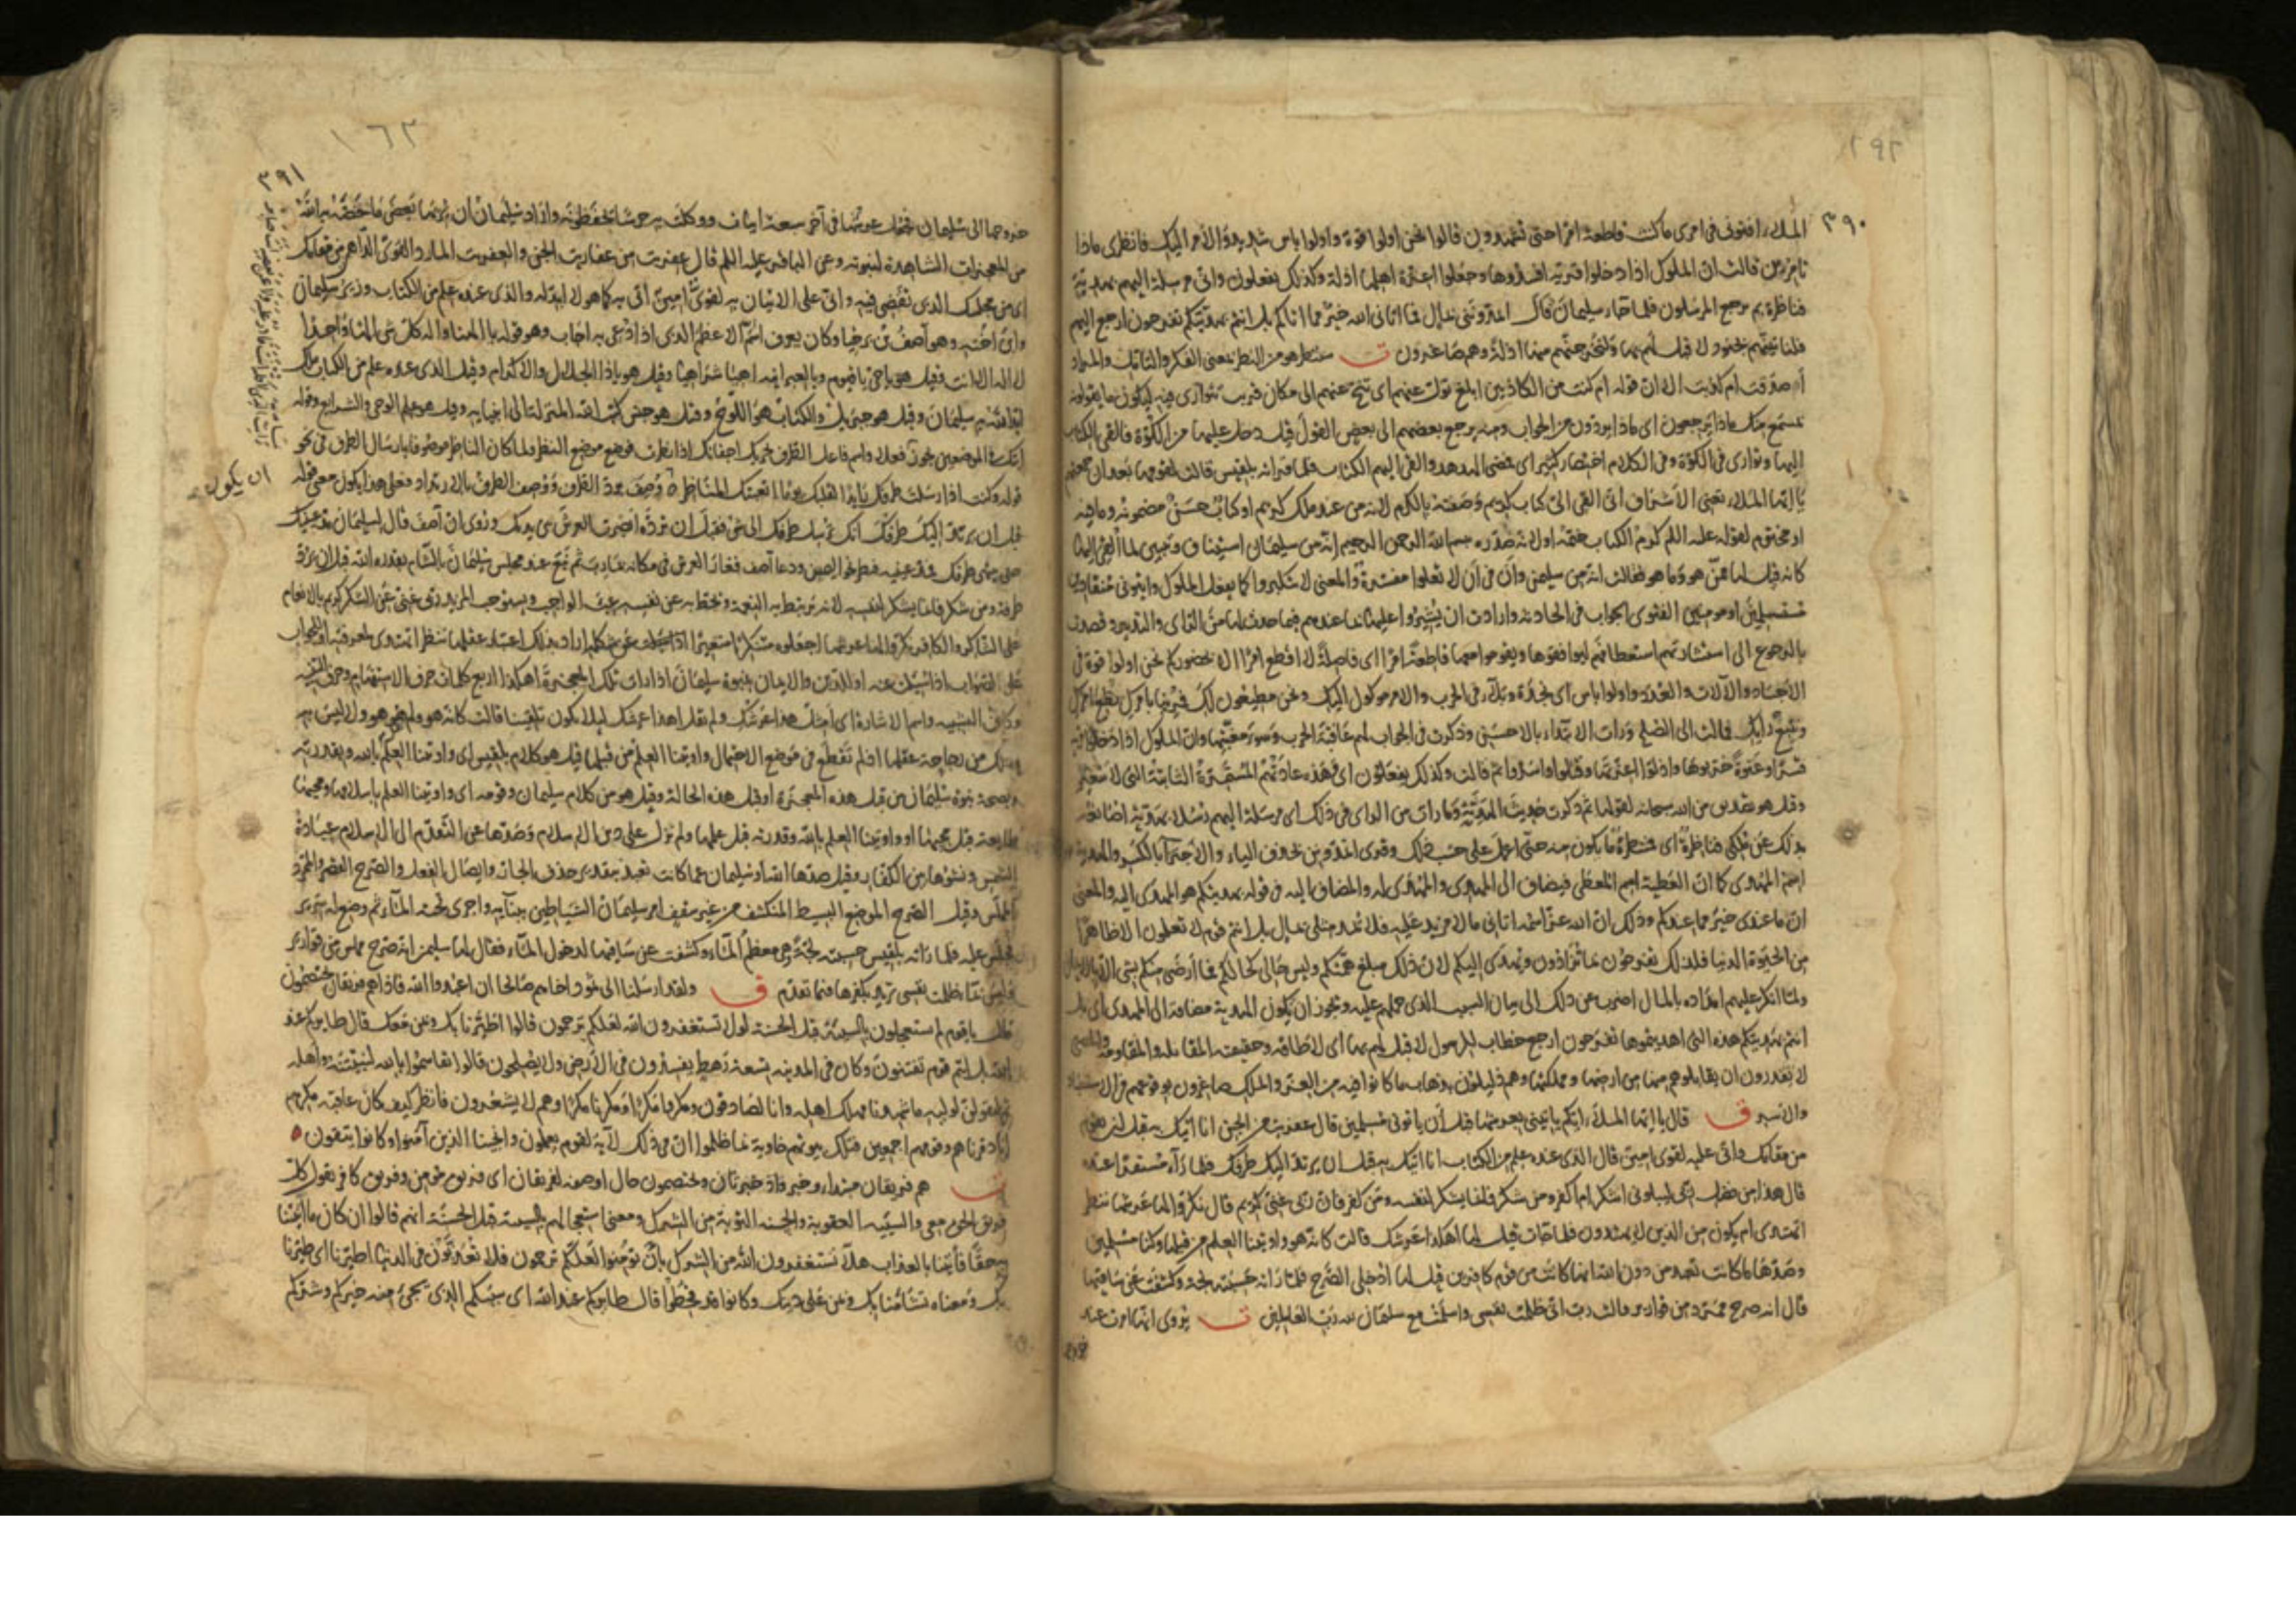 ٢٩٢
٣٩٠
الملاء افتوني في امرى ماكنت قاطعة امرا حتى تشهدون قالوا نحن اولوا قوة واولوا باس شديد والأمر اليك فانظرى ماذا
تامرين قالت ان الملوك اذا دخلوا قرية افسدوها وجعلوا اعزة اهلها اذلة وكذلك يفعلون وانى مرسلة اليهم بهدية
فناظرة بم يرجع المرسلون فلما جاء سليمان قال اتمدونني بمال فما اتانى الله خير مما اتاكم بل انتم بهديتكم تفرحون ارجع اليهم
فلناتينهم بجنود لا قبل لهم بها ولنخرجنهم منها اذلة وهم صاغرون ت سننظر هو من النظر بمعنى الفكر والتامل والمراد
أ صدقت ام كذبت الا ان قوله ام كنت من الكاذبين ابلغ تول عنهم اى تنح عنهم الى مكان قريب تتوارى فيه ليكون ما يقولونه
بمسمع منك ماذا يرجعون اى ماذا يردون من الجواب ومنه يرجع بعضهم الى بعض القول قيل دخل عليها من الكوة فالقى الكتاب
اليها وتوارى في الكوة وفى الكلام اختصار كثير اى فمضى الهدهد والقى اليهم الكتاب فلما قراته بلقيس قالت لقومها بعد ان جمعتهم
يا ايها الملاء يعنى الاشراف انى القى الى كتاب كريم وصفته بالكرم لانه من عند ملك كريم او كتاب حسن مضمونه وما فيه
او مختوم لقوله عليه السلم كرم الكتاب ختمه اولانه صدره بسم الله الرحمن الرحيم انه من سليمان استيناف وتبيين لما القى اليها
كانه قيل لها ممن هو وما هو فقالت انه من سليمن وأن في أن لا تعلوا مفسرة والمعنى لا تتكبروا كما يفعل الملوك واتونى منقادين
مستسلمين او مومنين الفتوى الجواب في الحادثة وارادت ان يشيروا عليها بما عندهم فيما حدث لها من الراى والتدبير وقصدت
بالرجوع الى استشارتهم استعطافهم ليوافقوها ويقوموا معها قاطعة امرا اى فاصلة لا اقطع امرا الا بحضوركم نحن اولوا قوة في
الاجساد والآلات والعدد واولوا باس اى نجدة وبلاء في الحرب والامر موكول اليك ونحن مطيعون لك فمرينا بامرك نطع امرك
ونتبع رايك فمالت الى الصلح ورات الابتداء بالاحسن وذكرت في الجواب لهم عاقبة الحرب وسوء مغبتها وان الملوك اذا دخلوا قرية
قسرا وعنوة خربوها واذلوا اعزتها وقتلوا واسروا ثم قالت وكذلك يفعلون اى وهذه عادتهم المستقرة الثابتة التى لا تتغير
وقيل هو تصديق من الله سبحانه لقولها ثم ذكرت حديث الهدية وما رات من الراى في ذلك اى مرسلة اليهم رسلا بهدية اصانعه
بذلك عن ملكى فناظرة اى منتظرة ما يكون منه حتى اعمل على حسب ذلك وقرى اتمدونن بحذف الياء والاجتزاء بالكسر والهدية
اسم المهدى كما ان العطية اسم المعطى فيضاف الى المهدى والمهدى له والمضاف اليه في قوله بهديتكم هو المهدى اليه والمعنى
ان ما عندى خير مما عندكم وذلك ان الله عز اسمه اتانى ما لا مزيد عليه فلا يمد مثلى بمال بل انتم قوم لا تعلمون الا ظاهرا
من الحيوة الدنيا فلذلك تفرحون بما تزادون ويهدى اليكم لان ذلك مبلغ همتكم وليس حالى كحالكم فما أرضى منكم بشى الا بالايمان
ولما انكر عليهم امداده بالمال اضرب عن ذلك الى بيان السبب الذى حملهم عليه ويجوز ان يكون الهدية مضافة الى المهدى اى بل
انتم بهديتكم هذه التى اهديتموها تفرحون ارجع خطاب للرسول لا قبل لهم بها اى لا طاقة وحقيقته المقابلة والمقاومة والمعنى
لا يقدرون ان يقابلوهم منها من ارضها ومملكتها وهم ذليلون بذهاب ما كانوا فيه من العز والملك صاغرون بوقوعهم في الاستعباد
والاسر ق قال يا ايها الملاء ايكم ياتينى بعرشها قبل أن ياتونى مسلمين قال عفريت من الجن انا اتيك به قبل ان تقوم
من مقامك وانى عليه لقوى امين قال الذى عنده علم من الكتاب انا اتيك به قبل ان يرتد اليك طرفك فلما رآه مستقرا عنده
قال هذا من فضل ربى ليبلونى ااشكر ام اكفر ومن شكر فانما يشكر لنفسه ومن كفر فان ربى غنى كريم قال نكروا لها عرشها ننظر
اتهتدى ام يكون من الذين لا يهتدون فلما جاءت قيل لها اهكذا عرشك قالت كانه هو واوتينا العلم من قبلها وكنا مسلمين
وصدها ما كانت تعبد من دون الله انها كانت من قوم كافرين قيل لها ادخلى الصرح فلما راته حسبته لجة وكشفت عن ساقيها
قال انه صرح ممرد من قوارير قالت رب انى ظلمت نفسى واسلمت مع سليمان لله رب العالمين ت يروى انها امرت عند
خروجها
١٦٣
٣٩١
خروجها الى سليمان فجعل عرشها في آخر سبعة ابيات ووكلت به حرسا يحفظونه واراد سليمان ان يريها بعض ما خصه به الله
من المعجزات الشاهدة لنبوته وعن الباقر عليه السلم قال عفرت من عفاريت الجن والعفريت المارد القوى الداهى من مقامك
اى من مجلسك الذى تقضى فيه وانى على الاتيان به لقوى امين اتى به كما هو لا ابدله والذى عنده علم من الكتاب وزير سليمان
وابن اخته وهو آصف بن برخيا وكان يعرف اسم الله الاعظم الذى اذا دعى به اجاب وهو قوله يا الهنا واله كل شى الها واحدا
لا اله الا انت وقيل هو يا حى يا قيوم وبالعبرانية اهيا شراهيا وقيل هو يا ذا الجلال والاكرام وقيل الذى عنده علم من الكتاب ملك
ايد الله به سليمان وقيل هو جبرئيل والكتاب هو اللوح وقيل هو جنس كتب الله المنزلة الى انبيائه وقيل هو علم الوحى والشرايع وقوله
اتيك في الموضعين يجوز فعلا واسم فاعل الطرف تحريك اجفانك اذا نظرت فوضع موضع النظر ولما كان الناظر موصوفا بارسال الطرف في نحو
قوله وكنت اذا ارسلت طرفك رايدا لقلبك يوما اتعبتك المناظر وصف برد الطرف ووصف الطرف بالارتداد وعلى هذا يكون معنى قوله
قبل ان يرتد اليك طرفك انك ترسل طرفك الى شى فقبل ان ترده ابصرت العرش بين يديك وروى ان آصف قال لسليمان مد عينيك
حتى ينتهى طرفك فمد عينيه فنظر نحو اليمين ودعا آصف فغار العرش في مكانه بمارب ثم نبع عند مجلس سليمان بالشام بقدرة الله قبل ان يرد
طرفه ومن شكر فانما يشكر لنفسه لانه يرتبط به النعمة ويحط به عن نفسه عبء الواجب ويستوجب المزيد ربى غنى عن الشكر كريم بالانعام
على الشاكر والكافر نكروا لها عرشها اجعلوه متنكرا متغيرا اراد بذلك اعتبار عقلها ننظر اتهتدى لمعرفته او للجواب
على الصواب اذا سئلت عنه او للدين والايمان بنبوة سليمان اذا رات تلك المعجزة اهكذا اربع كلمات حرف الاستفهام وحرف التنبيه
وكاف التشبيه واسم الاشارة اى امثل هذا عرشك ولم يقل اهذا عرشك ليلا يكون تلقينا قالت كانه هو ولم تقل هو هو ولا ليس به
وذلك من رجاحة عقلها اذ لم تقطع في موضع الاحتمال واوتينا العلم من قبلها قيل هو كلام بلقيس اى واوتينا العلم بالله وبقدرته
وبصحة نبوة سليمان من قبل هذه المعجزة او قبل هذه الحالة وقيل هو من كلام سليمان وقومه اى واوتينا العلم باسلامها ومجيئها
طايعة قبل مجيئها او واوتينا العلم بالله وقدرته قبل علمها ولم نزل على دين الاسلام وصدها عن التقدم الى الاسلام عبادة
الشمس ونشوها بين الكفار وقيل صدها الله او سليمان عما كانت تعبد بتقدير حذف الجار وايصال الفعل والصرح القصر والممرد
المملس وقيل الصرح الموضع البسيط المنكشف من غير سقف امر سليمان الشياطين ببنائه واجرى تحته الماء ثم وضع له سرير
فجلس عليه فلما راته بلقيس حسبته لجة وهى معظم الماء وكشفت عن ساقيها لدخول الماء فقال لها سليمن انه صرح مملس من قوارير
وليس بماء ظلمت نفسى تريد بكفرها فيما تقدم ق ولقد ارسلنا الى ثمود اخاهم صالحا ان اعبدوا الله فاذا هم فريقان يختصمون
قال يا قوم لم تستعجلون بالسيئة قبل الحسنة لولا تستغفرون الله لعلكم ترحمون قالوا اطيرنا بك وبمن معك قال طايركم عند
الله بل انتم قوم تفتنون وكان في المدينة تسعة رهط يفسدون في الارض ولا يصلحون قالوا تقاسموا بالله لنبيتنه واهله
ثم لنقولن لوليه ما شهدنا مهلك اهله وانا لصادقون ومكروا مكرا ومكرنا مكرا وهم لا يشعرون فانظر كيف كان عاقبة مكرهم
انا دمرناهم وقومهم اجمعين فتلك بيوتهم خاوية بما ظلموا ان في ذلك لآية لقوم يعلمون وانجينا الذين آمنوا وكانوا يتقون
ت هم فريقان مبتداء وخبر واذا خبر ثان ويختصمون حال او صفة لفريقان اى فريق مومن وفريق كافر يقول كل
فريق الحق معى والسيئة العقوبة والحسنة التوبة من الشرك ومعنى استعجالهم بالسيئة قبل الحسنة انهم قالوا ان كان ما اتيتنا
به حقا فأتنا بالعذاب هلا تستغفرون الله من الشرك بان تومنوا لعلكم ترحمون فلا تعذبون في الدنيا اطيرنا اى تطيرنا
بك ومعناه تشأمنا بك وبمن على دينك وكانوا قد قحطوا قال طايركم عند الله اى سببكم الذى يجىء منه خيركم وشركم
ان يكون